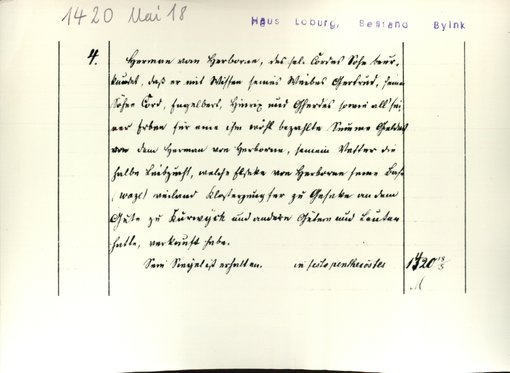 1420 Mai 18
Haus Loburg, Bestand Byink
4.
Herman van Herborne, des sel. Cordes Sohn beur-
kundet, daß er mit Wissen seines Weibes Gertrud, seiner
Söhne Cord, Engelbert, Hinrip und Gherdes sowie all sei-
ner Erben für eine ihm wohl bezahlte Summe Geldes
von dem Herman von Herborne, seinem Vetter die
halbe Leibzucht, welche von Herborne seine Base
(wazl) weiland Klosterjungfer zu Geseke an dem
Gute zu Kurwyck und andern Gütern und Leuten
hatte, verkauft habe.
Sein Siegel ist erhalten. in festo penthecostes 1420 18/5